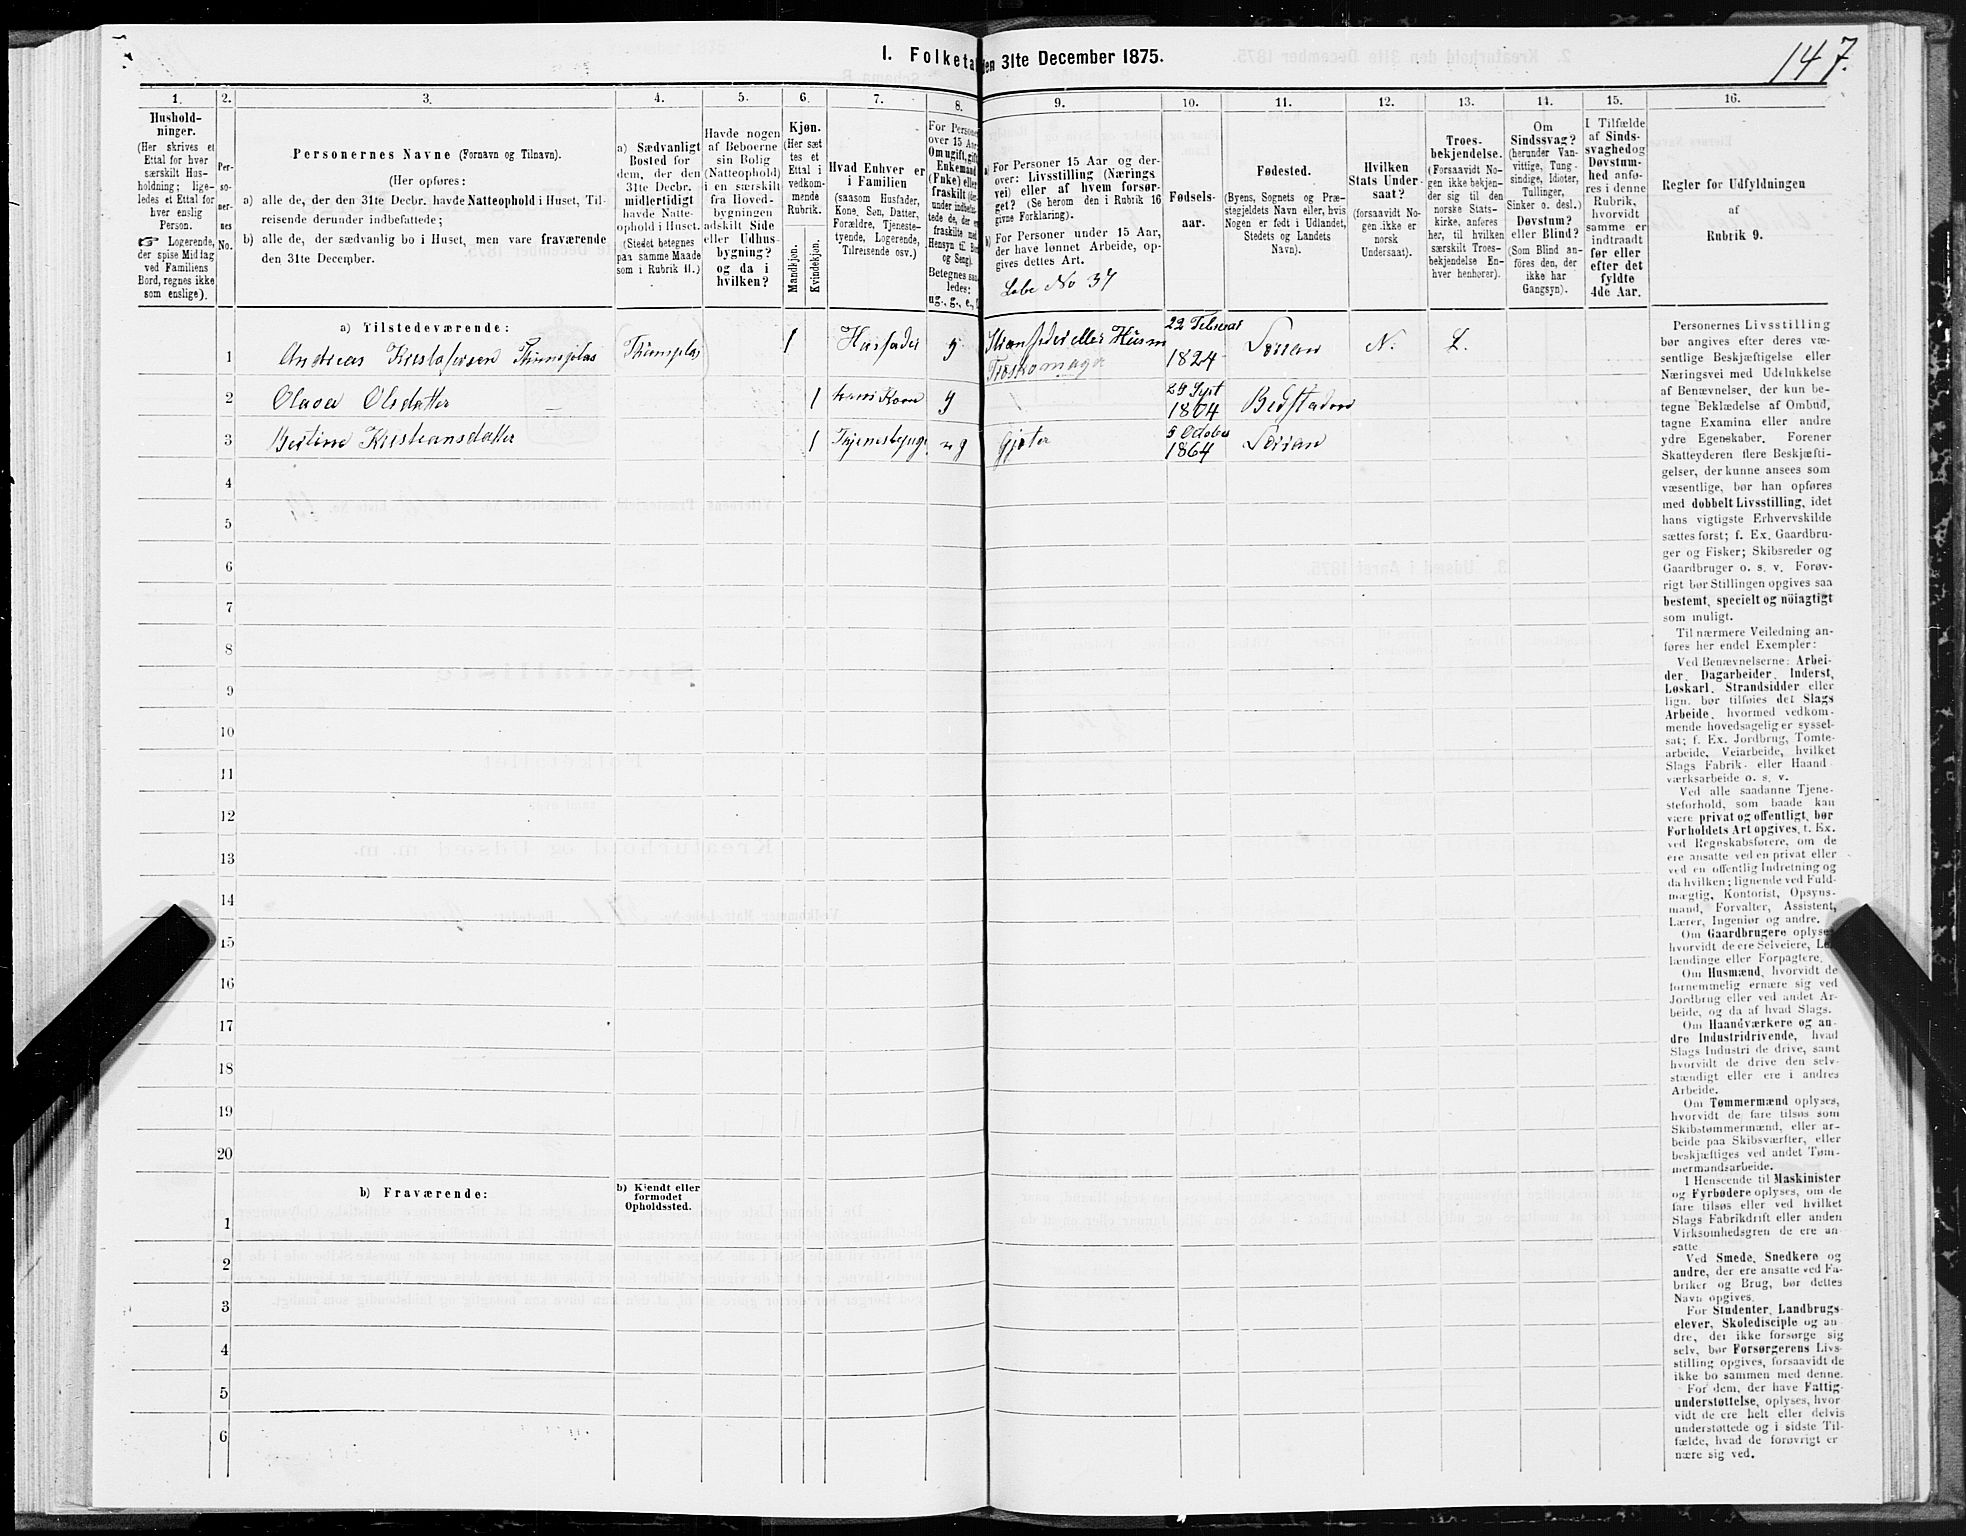 I. Folketa
den 31te December 1875.
147.
1.
2.
3.
4.
5.
6.
7.
8.
9.
10.
11.
12.
13.
14.
15.
16.
Hushold-
ninger.
(Her skrives et
Ettal for hver
særskilt Hus-
holdning; lige-
ledes et Ettal for
hver enslig
Person.
☞ Logerende,
der spise Middag
ved Familiens
Bord, regnes ikke
som enslige).
Per-
so-
ner-
nes
No.
Personernes Navne (Fornavn og Tilnavn).
(Her opføres:
a) alle de, der den 31te Decbr. havde Natteophold i Huset, Til-
reisende derunder indbefattede;
b) alle de, der sædvanlig bo i Huset, men vare fraværende
den 31te December.
a) Sædvanligt
Bosted for
dem, der den
31te Decbr.
midlertidigt
havde Natte-
ophold i Huset.
(Stedet betegnes
paa samme Maade
som i Rubrik 11.)
Havde nogen
af Beboerne
sin Bolig
(Natteophold)
i en særskilt
fra Hoved-
bygningen
adskilt Side
eller Udhus-
bygning?
og da i
hvilken?
Kjøn.
(Her sæt
tes et
Ettal i
vedkom-
mende
Rubrik.
Mandkjøn.
Kvindekjøn.
Hvad Enhver er
i Familien
(saasom Husfader,
Kone, Søn, Datter,
Forældre, Tjeneste-
tyende, Logerende,
Tilreisende osv.)
For Persone
over 15 Aar:
Om ugift, gift
Enkemand
(Enke) eller
fraskilt (der-
under indbefat-
tede de, der er
fraskilte med
Hensyn til Bor
og Seng).
Betegnes saa-
ledes:
ug., g., e.,
a) For Personer 15 Aar og der-
over: Livsstilling (Nærings
vei) eller af hvem forsør-
get? (Se herom den i Rubrik 16
givne Forklaring).
b) For Personer under 15 Aar,
der have lønnet Arbeide, op-
gives dettes Art.
Løbe No 34
Fødsels-
aar.
Fødested.
(Byens, Sognets og Præ-
stegjeldets Navn eller, hvis
Nogen er født i Udlandet,
Stedets og Landets
Navn).
Hvilken
Stats Under-
saat?
(forsaavidt No-
gen ikke er
norsk
Undersaat).
Troes-
bekjendelse.
(Forsaavidt No-
gen ikke bekjen-
der sig til den
norske Stats-
kirke, anføres
her, til hvilken
særskilt Troes-
bekjendelse En-
hver henhører).
Om
Sindssvag?
(herunder Van-
vittige, Tung-
sindige, Idioter,
Tullinger,
Sinker o. desl.)
Døvstum?
eller Blind?
(Som Blind an-
føres den, der
ikke har
Gangsyn).
I Tilfælde
af Sinds-
svaghed og
Døvstum-
hed anfø-
res i denne
Rubrik,
hvorvidt
samme er
indtraadt
før eller
efter det
fyldte
4de Aar.
Regler for Udfyldningen
af
Rubrik 9.
a) Tilstedeværende:
1 Andreas Kristofersen 1 Husfader g 22 1824 N. L.
2 Olava Olsdatter 1 hans Kone g 1804
3 Kristiansdatter 1 Gjeter 5 October 1864
4
5
6
7
8
9
10
11
12
13
14
15
16
17
18
19
20
b) Fraværende:
b) Kjendt eller
formodet
Opholdssted.
1
2
3
4
5
6
Personernes Livsstilling
bør angives efter deres væ-
sentlige Beskjæftigelse eller
Næringsvei med Udelukkelse
af Benævnelser, der kun be-
tegne Beklædelse af Ombud,
tagne Examina eller andre
ydre Egenskaber. Forener
Skatteyderen flere Beskjæfti-
gelser, der kunne ansees som
væsentlige, bør han opføres
med dobbelt Livsstilling, idet
hans vigtigste Erhvervskilde
sættes først; f. Ex. Gaardbru-
ger og Fisker; Skibsreder og
Gaardbruger o. s. v. Forøv-
rigt bør Stillingen opgives saa
bestemt, specielt og nöiagtigt
som muligt.
Til nærmere Veiledning an-
føres her endel Exempler:
Ved Benævnelserne: Arbei-
der, Dagarbeider, Inderst,
Løskarl, Strandsidder eller
lign. bør tilføies det Slags
Arbeide, hvormed vedkom-
mende hovedsagelig er syssel-
sat; f. Ex. Jordbrug, Tomte-
arbeide, Veiarbeide, hvilket
Slags Fabrik- eller Haand-
værksarbeide o. s. v.
Ved alle saadanne Tjene-
steforhold, som baade kan
være privat og offentligt, bør
Forholdets Art opgives, t. Ex.
ved Regnskabsførere, om de
ere ansatte ved en privat eller
ved en offentlig Indretning og
da hvilken; lignende ved Fuld-
mægtig, Kontorist, Opsyns-
mand, Forvalter, Assistent,
Lærer, Ingeniør og andre.
Om Gaardbrugere oplyses,
hvorvidt de ere Selveiere, Lei-
lændinge eller Forpagtere.
Om Husmænd, hvorvidt de
fornemmelig ernære sig ved
Jordbrug eller ved andet Ar-
beide, og da af hvad Slags.
Om Haandværkere og an-
dre Industridrivende, hvad
Slags Industri de drive, samt
hvorvidt de drive den selv-
stændigt eller ere i andres
Arbeide.
Om Tømmermænd oplyses,
hvorvidt de fare tilsøs som
Skibstømmermænd, eller ar-
beide paa Skibsværfter, eller
beskjæftiges ved andet Tøm-
mermandsarbeide.
I Henseende til Maskinister
og Fyrbødere oplyses, om de
fare tilsøs eller ved hvilket
Slags Fabrikdrift eller anden
Virksomhedsgren de ere an-
satte.
Ved Smede, Snedkere og
andre, der ere ansatte ved Fa-
briker og Brug, bør dettes
Navn opgives.
For Studenter, Landbrugs-
elever, Skoledisciple og an-
dre, der ikke forsørge sig
selv, bør Forsørgerens Livs-
stilling opgives, forsaavidt de
ikke bo sammen med denne.
For dem, der have Fattig-
understøttelse, oplyses, hvor-
vidt de ere helt eller delvis
understøttede og i sidste Til-
fælde, hvad de forøvrigt er-
nære sig ved.